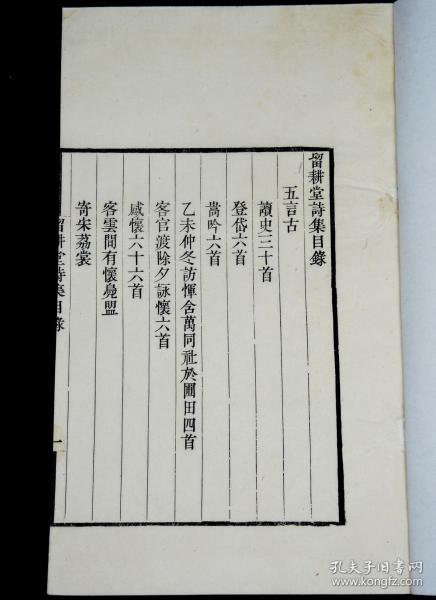 留耕堂詩集目錄
五言古
讀史三十首
登岱六首
嵩吟六首
乙未仲冬訪惲含萬同社於圃田四首
客官渡除夕詠懷六首
感懷六十六首
客雲間有懷凫盟
寄宋荔裳
留耕堂詩集目錄
一
孔夫子旧书网
www.kongfz.com